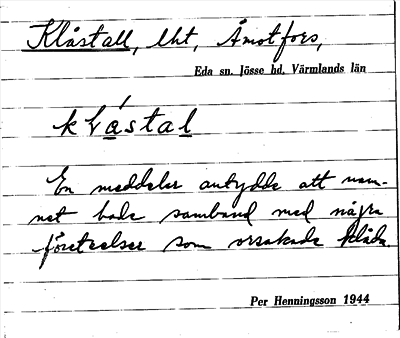 Klåstall, lht, Åmotfors,
Eda sn. Jösse hd. Värmlands län
En meddelar antydde att nam-
net hade samband med några
företeelser som orsakade klåda.
Per Henningsson 1944